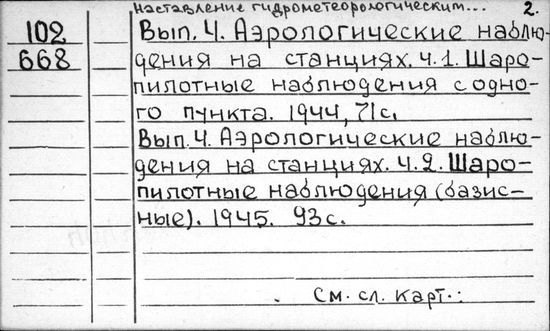 Наставление гидрометеорологическим... 2.
102
668
Вып. 4. Аэрологические наблю-
дения на станциях. ч. 1. Шаро-
пилотные наблюдения с одно-
го пункта. 1944, 71 с.
Вып. 4. Аэрологические наблю-
дения на станциях. ч. 2. Шаро-
пилотные наблюдения (базис-
ные). 1945. 93 с.
См. сл. карт.: